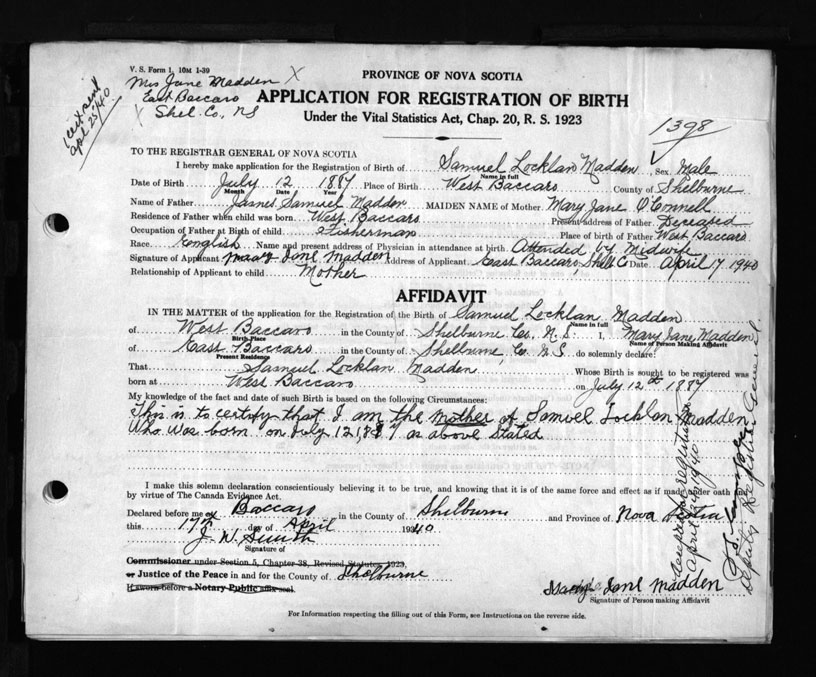 V. S. Form 1. 10M 1-39
Mrs Jane Madden X
East Baccaro
Shel. Co., NS
1 cert sent
Apl. 25/40
PROVINCE OF NOVA SCOTIA
APPLICATION FOR REGISTRATION OF BIRTH
Under the Vital Statistics Act, Chap. 20, R. S. 1923
1398
TO THE REGISTRAR GENERAL OF NOVA SCOTIA
I hereby make application for the Registration of Birth of Samuel Locklan Madden Sex Male
Name in full
Date of Birth July 12 1887 Place of Birth West Baccaro County of Shelburne
Month Date Year
Name of Father James Samuel Madden MAIDEN NAME of Mother Mary Jane O'Connell
Residence of Father when child was born West Baccaro Present address of Father Deceased
Occupation of Father at Birth of child Fisherman Place of birth of Father West Baccaro
Race English Name and present address of Physician in attendance at birth Attended by Midwife
Signature of Applicant Mary Jane Madden Address of Applicant East Baccaro, Shelb Co Date April 17 1940
Relationship of Applicant to child Mother
AFFIDAVIT
IN THE MATTER of the application for the Registration of the Birth of Samuel Locklan Madden
Name in full
of West Baccaro in the County of Shelburne Co. N. S. I, Mary Jane Madden
Birth Place Name of Person Making Affidavit
of East Baccaro in the County of Shelburne, Co. N S do solemnly declare:
Present Residence
That Samuel Locklan Madden Whose Birth is sought to be registered was
born at West Baccaro on July 12th 1887
My knowledge of the fact and date of such Birth is based on the following Circumstances:
This is to certify that I am the mother of Samuel Locklan Madden
Who was born on July 12, 1887 as above stated
I make this solemn declaration conscientiously believing it to be true, and knowing that it is of the same force and effect as if made under oath and
by virtue of The Canada Evidence Act.
Declared before me at Baccaro in the County of Shelburne and Province of Nova Scotia
this 17th day of April 1940
J. W. Smith
Signature of
Commissioner under Section 5, Chapter 38, Revised Statutes 1923,
or Justice of the Peace in and for the County of Shelburne
If sworn before a Notary Public affix seal.
Mary Jane Madden
Signature of Person making Affidavit
For Information respecting the filling out of this Form, see Instructions on the reverse side.
April 1940
Deputy Registrar General.